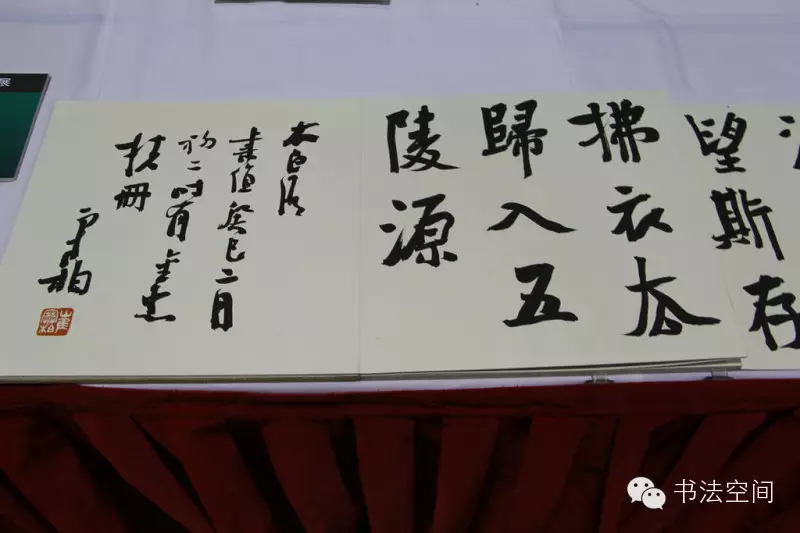 望斯存
拂衣去
歸入五
陵源
太白詩
書值癸巳二月
初二時有
冊
寒柏
展
书法空间